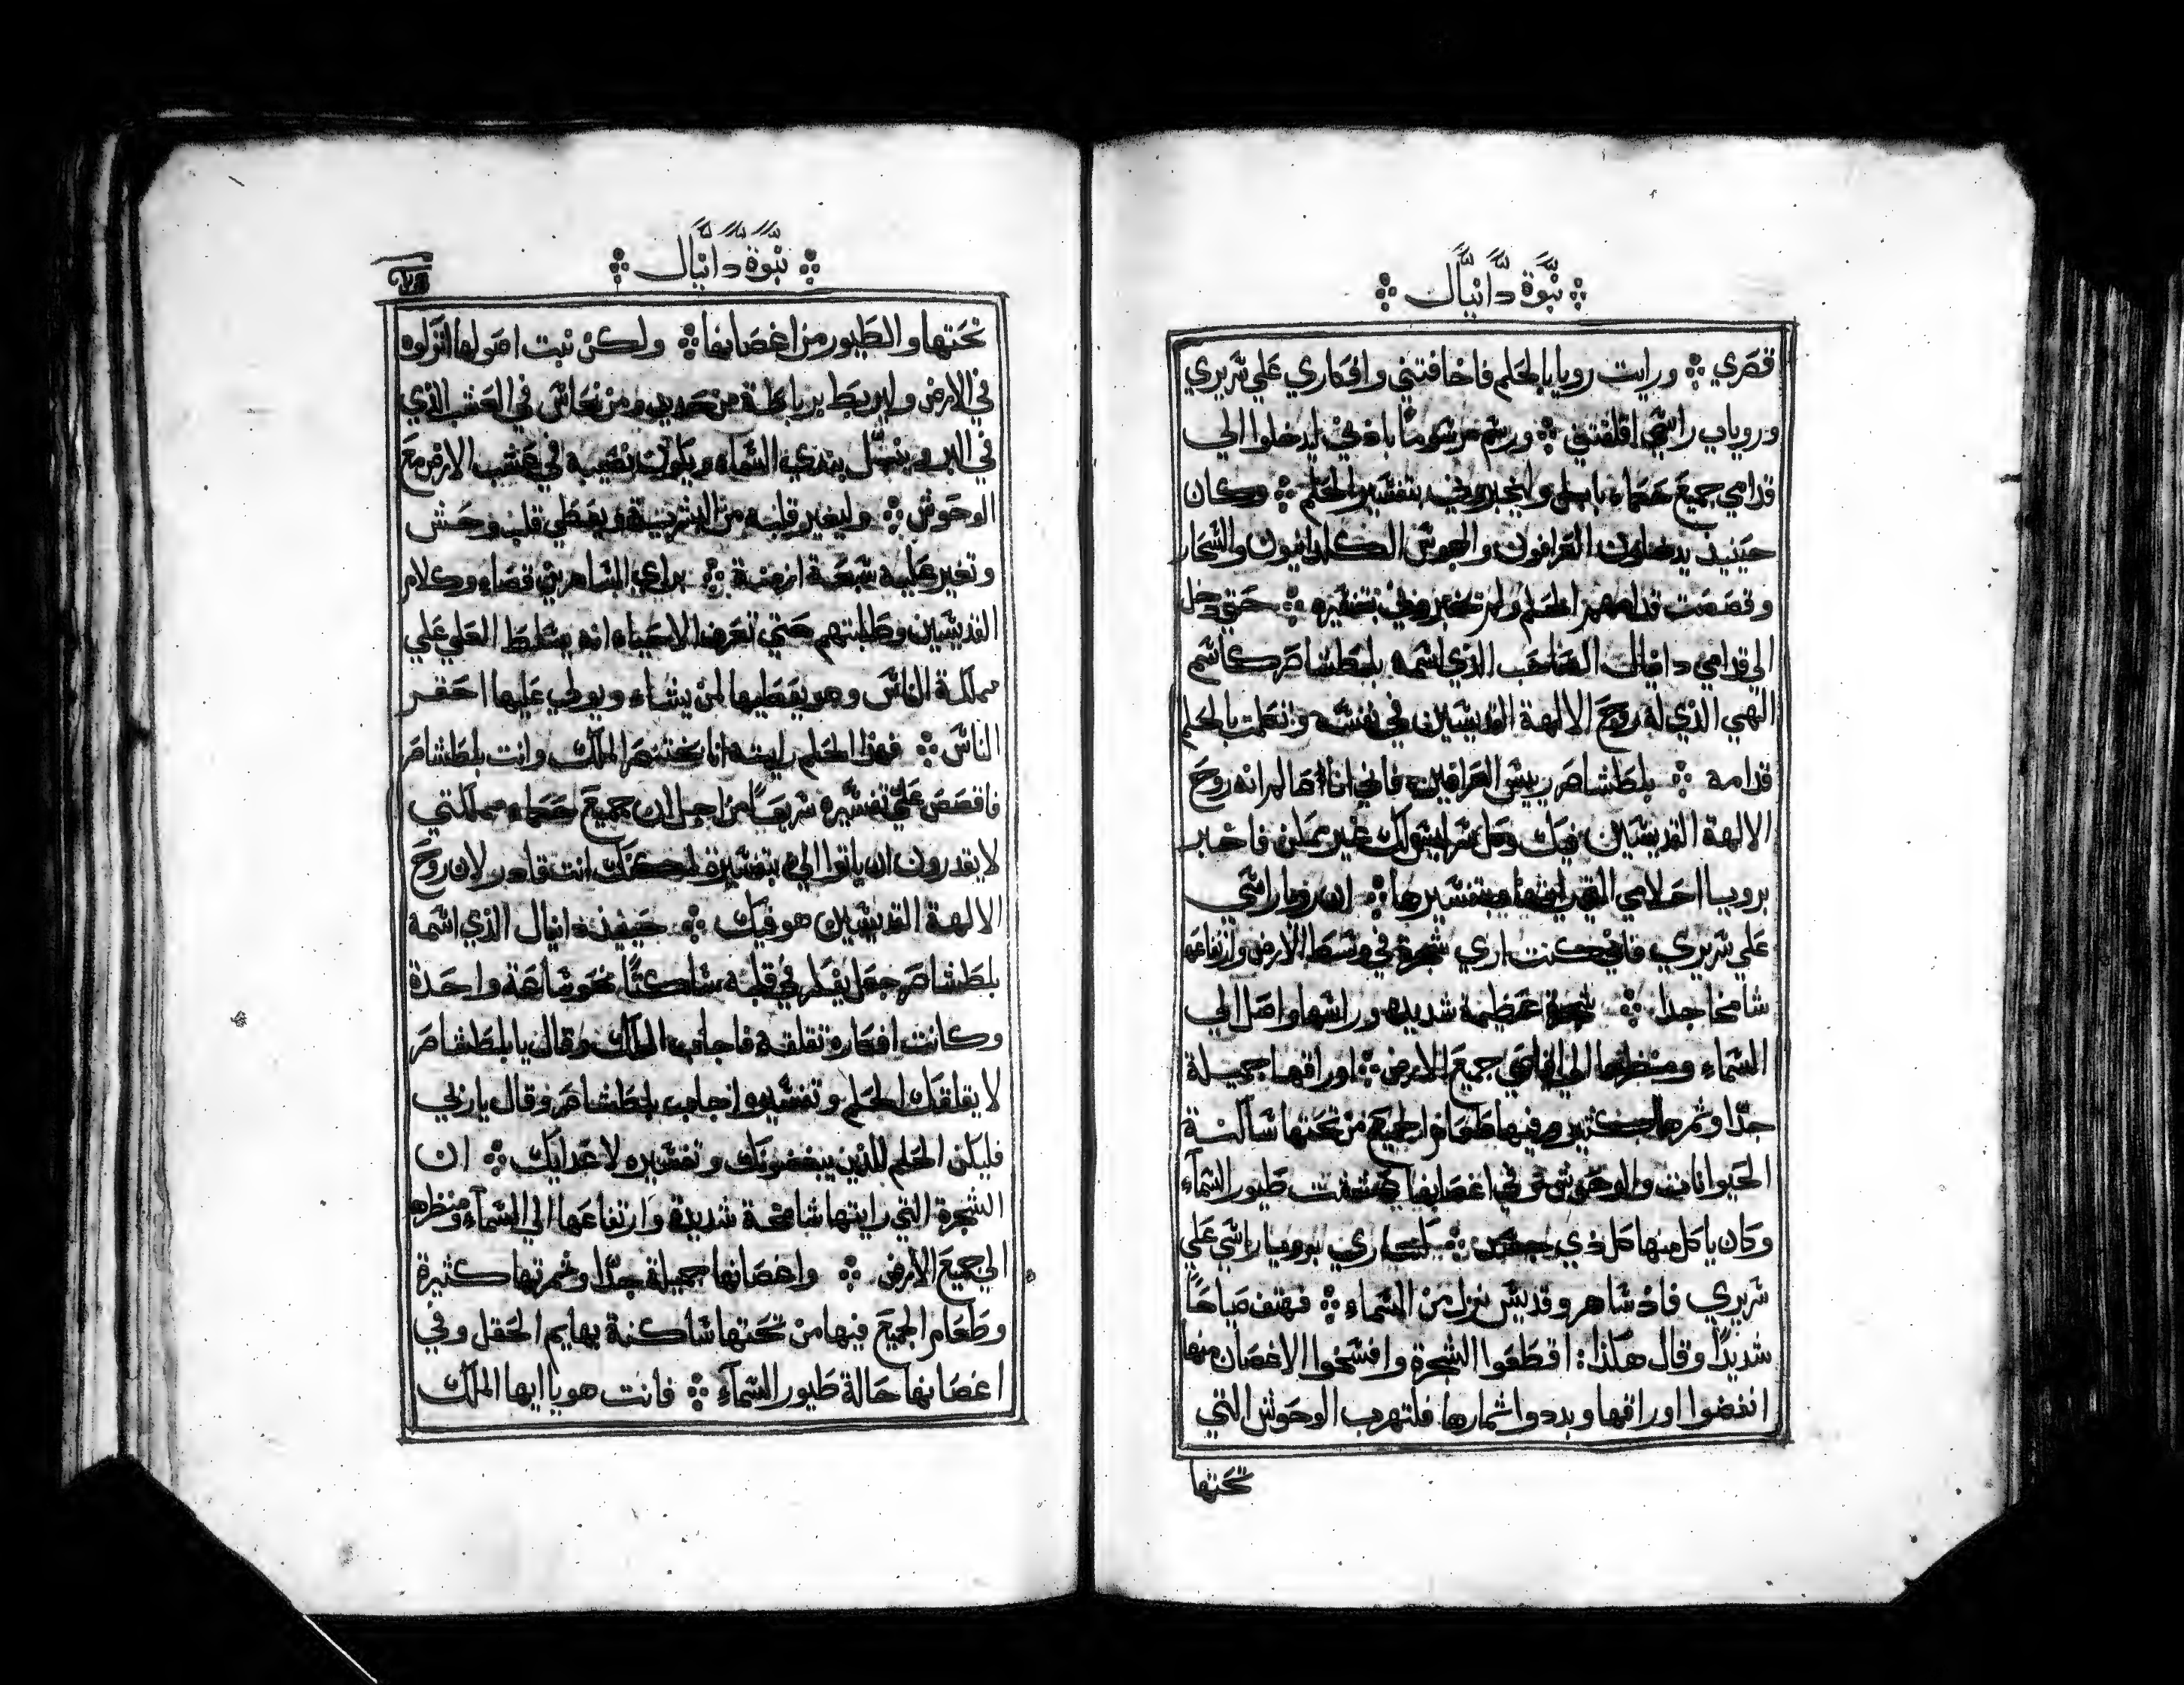 نبوة دانيال
قصري ورايت رويا بالحلم فاخافتني وافكاري علي سريري
ورويا راسي اقلقتني ورسم مرسوماً باذني ليدخلوا الي
قدامي جميع حكماء بابل وليخبروني بتفسير الحلم وكان
حينيذ يدخلون العرافون والمجوس الكلدانيون والسحار
وقصصت قدامهم الحلم ولم تخبروني بتفسيره حتي دخل
الي قدامي دانيال الصاحب الذي اسمه بلطشاصر كاسم
الهي الذي له روح الالهة القديسين في نفسه وتكلمت بالحلم
قدامه بلطشاصر رييس العرافين فاني انا عالم انه روح
الالهة القديسين فيك وكل سر ليس لك غير ممكن فاخبر
برويا احلامي التي رايتها وبتفسيرها ان رويا راسي
علي سريري فاني كنت اري شجرة في وسط الارض وارتفاعها
شامخا جدا شجرة عظيمة شديدة وراسها واصل الي
السماء ومنظرها الي اقاصي جميع الارض اوراقها جميلة
جداً وثمرها كثير وفيها طعاماً للجميع من تحتها ساكنة
الحيوانات والوحوش وفي اغصانها طيور السماء
وكان ياكل منها كل ذي جسد كنت اري برويا راسي علي
سريري فاذ ساهر وقديس نزل من السماء فهتف صياحاً
شديداً وقال هكذا: اقطعوا الشجرة وافسخوا الاغصان منها
انفضوا اوراقها وبددوا اثمارها فلتهرب الوحوش التي
تحتها
نبوة دانيال
تحتها والطيور من اغصانها ولكن نبت اصولها اتركوه
في الارض وليربط برباطة من حديد ومن نحاس في العشب الذي
في البر وينبل بندي السماء ويكون نصيبه في عشب الارض مع
الوحوش وليغير قلبه من البشرية ويعطي قلب وحش
وتغير عليه سبعة ازمنة براي الساهرين قضاء وكلام
القديسين وطلبتهم حتي تعرف الاحياء انه يتسلط العلي علي
مملكة الناس وهو يعطيها لمن يشاء ويولي عليها احقر
الناس فهذا الحلم رايته انا بختنصر الملك وانت بلطشاصر
فاقصص علي تفسيره سريعاً من اجل ان جميع حكماء مملكتي
لا يقدرون ان ياتوا الي بتفسيره لكنك انت قادر لان روح
الالهة القديسين هو فيك حينيذ دانيال الذي اسمه
بلطشاصر جعل يفكر في قلبه ساكتاً نحو ساعة واحدة
وكانت افكاره تقلقه فاجاب الملك وقال يا بلطشاصر
لا يقلقك الحلم وتفسيره اجاب بلطشاصر وقال يا ربي
فليكن الحلم للذين يبغضونك وتفسيره لاعدايك ان
الشجرة التي رايتها شامخة شديدة وارتفاعها الي السماء ومنظرها
الي جميع الارض واغصانها جميلة جداً وثمرتها كثيرة
وطعام الجميع فيها من تحتها ساكنة بهايم الحقل وفي
اغصانها حالة طيور السماء فانت هو يا ايها الملك